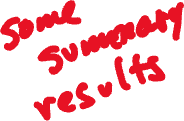 some
summary
results